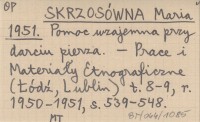 ƏP SKRZOSÓWNA Maria
1951. Pomoc wzajemna przy
darciu pierza. – Prace i
Materiały Etnograficzne
(Łódź, Lublin) t. 8-9, r.
1950-1951, s. 539-548.
MT